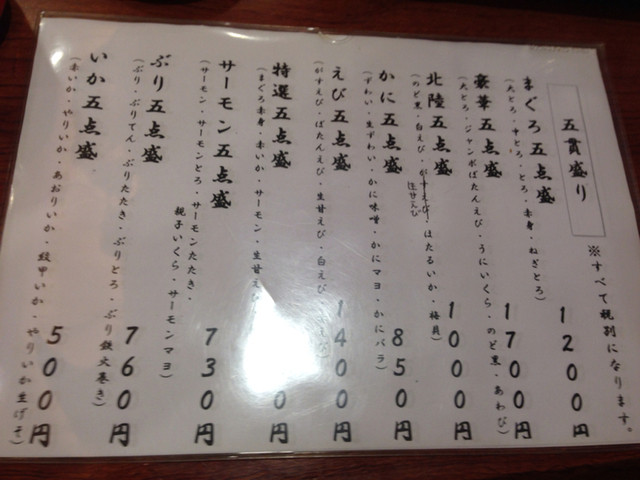 五貫盛り
※すべて税別になります。
まぐろ五点盛 1200円
(大とろ・中とろ・とろ・赤身・ねぎとろ)
豪華五点盛 1700円
(大とろ・ジャンボぼたんえび・うにいくら・のど黒・あわび)
北陸五点盛 1000円
(のど黒・白えび・がすえび・ほたるいか・梅貝)
甘えび
かに五点盛 850円
(ずわい・生ずわい・かに味噌・かにマヨ・かにバラ)
えび五点盛 1400円
(がすえび・ぼたんえび・生甘えび・白えび・
特選五点盛 00円
(まぐろ赤身・赤いか・サーモン・生甘えび
サーモン五点盛 730円
(サーモン・サーモンとろ・サーモンたたき・
親子いくら・サーモンマヨ)
ぶり五点盛 760円
(ぶり・ぶりてん・ぶりたたき・ぶりとろ・ぶり鉄火巻き)
いか五点盛 500円
(赤いか・やりいか・あおりいか・紋甲いか・やりいか生げそ)